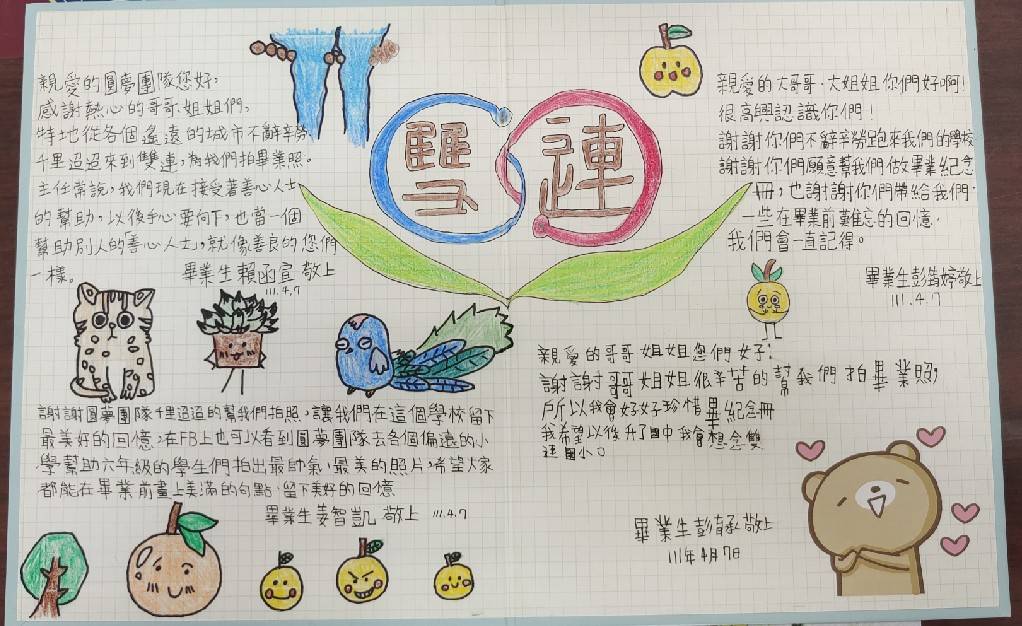 雙連
親愛的圓夢團隊您好,
感謝熱心的哥哥、姐姐們,
特地從各個遙遠的城市不辭辛勞,
千里迢迢來到雙連,為我們拍畢業照。
主任常說,我們現在接受著善心人士
的幫助,以後手心要向下,也當一個
幫助別人的「善心人士」,就像善良的您們
一樣。
畢業生賴函宣 敬上
111.4.7
親愛的大哥哥、大姐姐你們好啊!
很高興認識你們!
謝謝你們不辭辛勞跑來我們的學校
謝謝你們願意幫我們做畢業紀念
冊,也謝謝你們帶給我們
一些在畢業前難忘的回憶,
我們會一直記得。
畢業生彭婷敬上
111.4.7
謝謝圓夢團隊千里迢迢的幫我們拍照,讓我們在這個學校留下
最美好的回憶,在FB上也可以看到圓夢團隊去各個偏遠的小
學幫助六年級的學生們拍出最帥氣,最美的照片,希望大家
都能在畢業前畫上美滿的句點,留下美好的回憶
畢業生姜智凱 敬上 111.4.7
親愛的哥哥姐姐您們好!
謝謝哥哥姐姐很辛苦的幫我們拍畢業照,
所以我會好好珍惜畢紀念冊
我希望以後升了國中我會想念雙
連國小。
畢業生彭承敬上
111年4月7日